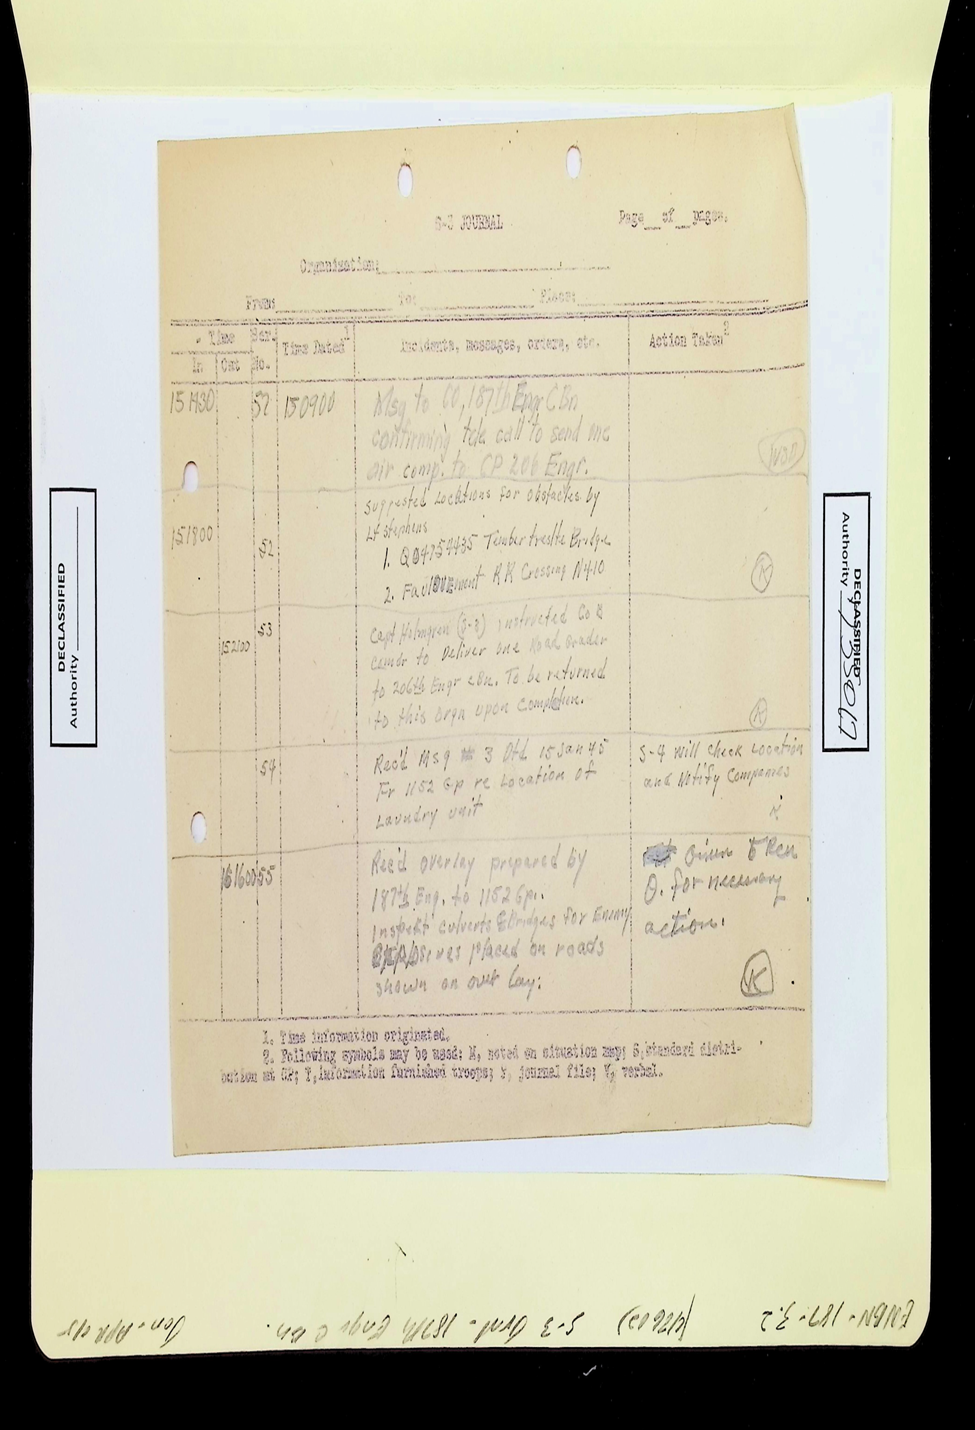 S-3 JOURNAL
Page___of___pages.
Organization:
From: To: Place:
Time Ser. Time Dated1 Incidents, messages, orders, etc. Action Taken2
In Out No.
151430 52 150900 Msg to CO, 187th Engr C Bn
confirming tele call to send one
air comp. to CP 206 Engr.
Suggested Locations for Obstacles by
Lt Stephens
151800 52 1. Q 04754435 Timber trestle Bridge
2. RR Crossing N410
K
53 Capt Holmgren (S-3) instructed Co B
152100 Comdr to Deliver one Road Grader
to 206th Engr cBn. To be returned
to this orgn upon Completion.
K
54 Rec'd Msg # 3 Dtd 15 Jan 45
Fr 1152 Gp re Location of
Laundry unit
S-4 will check Location
and Notify Companies
K
161600 55 Rec'd overlay prepared by
187th Eng. to 1152 Gp..
Inspect culverts & Bridges for Enemy
Explosives placed on roads
shown on over lay.
Given to Rcn
O. for necessary
action.
K
1. Time information originated.
2. Following symbols may be used: M, noted on situation map; S, standard distri-
bution at CP; T, information furnished troops; F, journal file; V, verbal.
DECLASSIFIED
Authority
DECLASSIFIED
Authority 735017
ENBN-187-3.2 (47602) S-3 Jrnl - 187th Engr C Bn. Jan-Apr 45